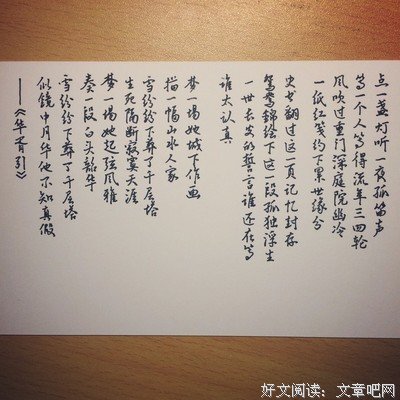 点一盏灯听一夜孤笛声
等一个人等得流年三四轮
风吹过重门深庭院幽冷
一纸红笺约下累世缘分
史书翻过这一页记忆封存
鸳鸯锦绘下这一段孤独浮生
一世长安的誓言谁还在等
谁太认真
梦一场她城下作画
描一幅山水人家
雪纷纷下葬了千层塔
生死隔断寂寞天涯
梦一场她起弦风雅
奏一段白头韶华
雪纷纷下葬了千层塔
似镜中月华他不知真假
——《华胥引》
好文阅读：文章吧网